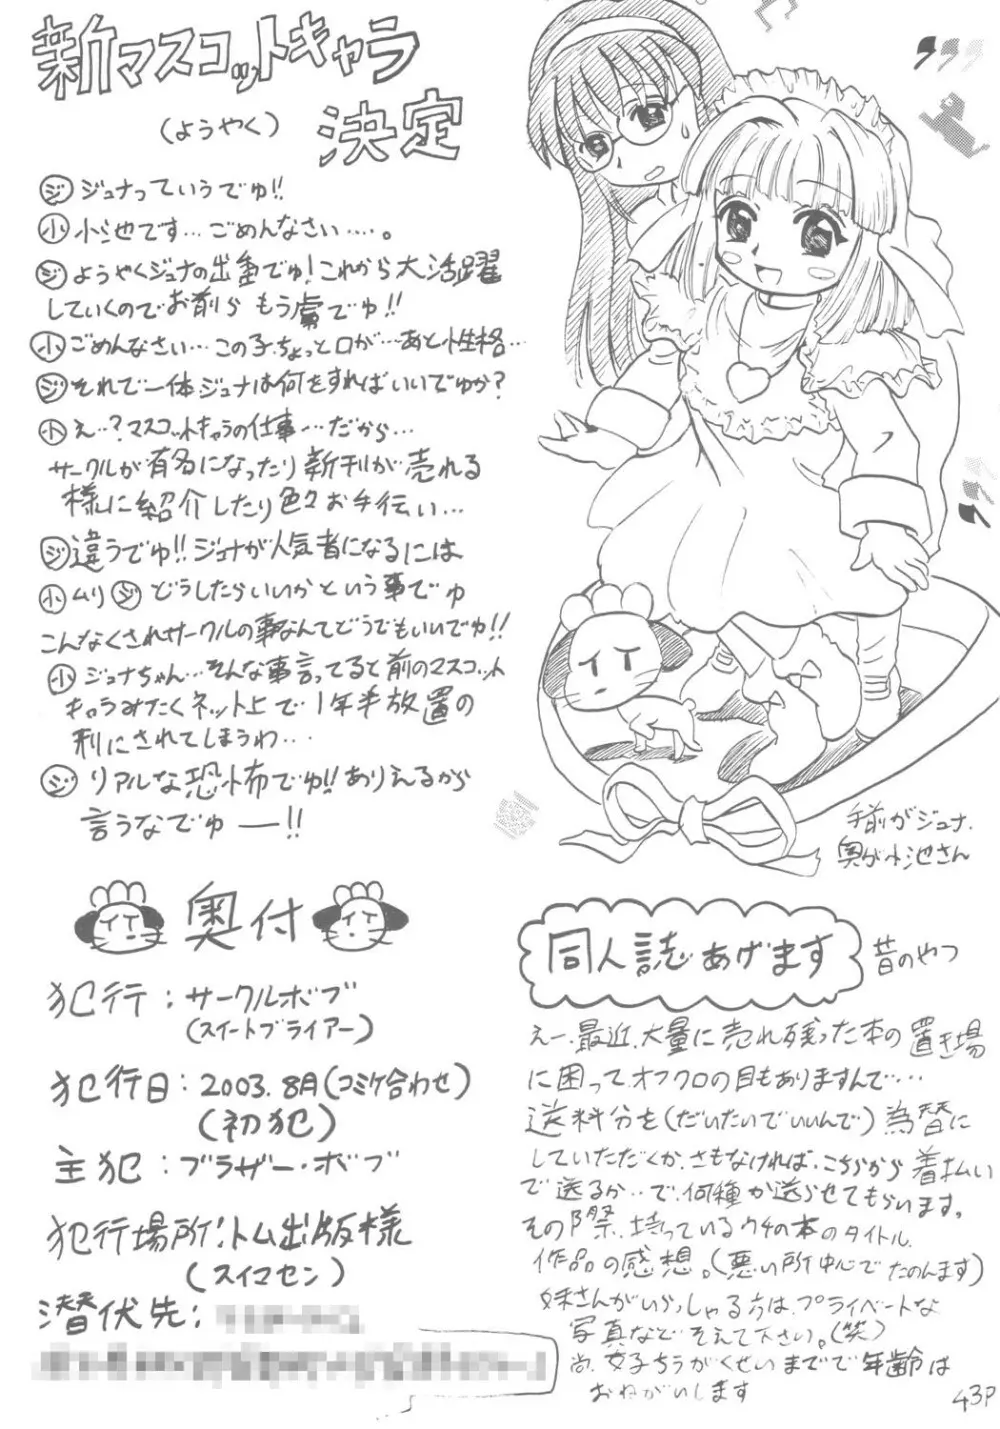 新マスコットキャラ
(ようやく) 決定
ジ ジュナっていうでゅ!!
小 小池です…ごめんなさい…。
ジ ようやくジュナの出番でゅ!これから大活躍
していくのでお前ら もう虜でゅ!!
小 ごめんなさい…この子、ちょっと口が…あと性格…
ジ それで一体ジュナは何をすればいいでゅか?
小 え…?マスコットキャラの仕事…だから…
サークルが有名になったり新刊が売れる
様に紹介したり色々お手伝い…
ジ 違うでゅ!!ジュナが人気者になるには
小 ムリ ジ どうしたらいいかという事でゅ
こんなくされサークルの事なんてどうでもいいでゅ!!
小 ジュナちゃん…そんな事言ってると前のマスコット
キャラみたくネット上で1年半放置の
刑にされてしまうわ…
ジ リアルな恐怖でゅ!!ありえるから
言うなでゅー!!
手前がジュナ、
奥が小池さん
奥付
犯行:サークルボブ
(スイートブライアー)
犯行日:2003.8月(コミケ合わせ)
(初犯)
主犯:ブラザー・ボブ
犯行場所:トム出版様
(スイマセン)
潜伏先:
同人誌あげます 昔のやつ
えー、最近、大量に売れ残った本の置き場
に困ってオフクロの目もありますんで…
送料分を(だいたいでいいんで)為替に
していただくか、さもなければ、こちらから着払い
で送るか…で、何種か送らせてもらいます。
その際、持っているウチの本のタイトル、
作品の感想。(悪い所中心でたのんます)
妹さんがいらっしゃる方は、プライベートな
写真などそえて下さい。(笑)
尚、女子ちうがくせいまでで年齢は
おねがいします
43P